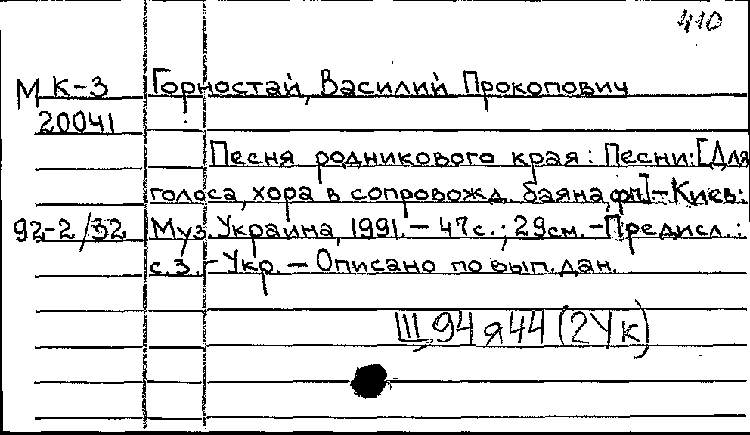 410
М К-3 Горностай, Василий Прокопович
20041
Песня родникового края: Песни: [Для
голоса, хора в сопровожд. баяна, фп.] – Киев:
92-2/32 Муз. Украина, 1991. – 47с.; 29см. – Предисл.:
с.3. – Укр. – Описано по вып. дан.
Щ94я44(2Ук)